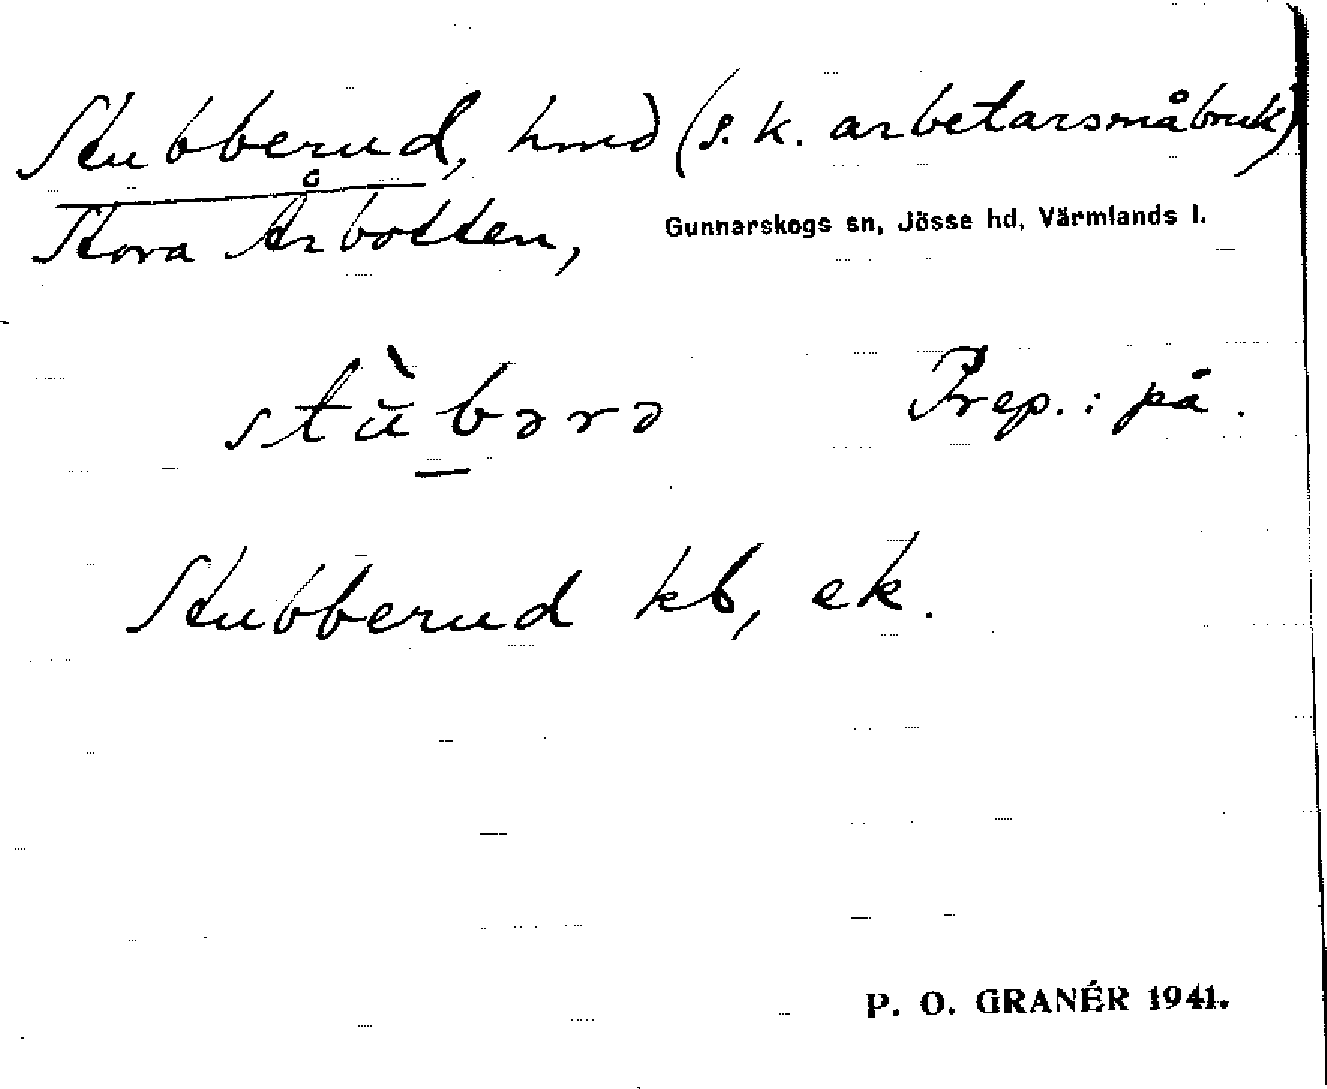 Stubberud, hmd (s.k. arbetarsmåbruk)
Stora Årbotten, Gunnarskogs sn, Jösse hd, Värmlands l.
stù̆bərə Prep.: på.
Stubberud kb, ek.
P. O. GRANÉR 1941.